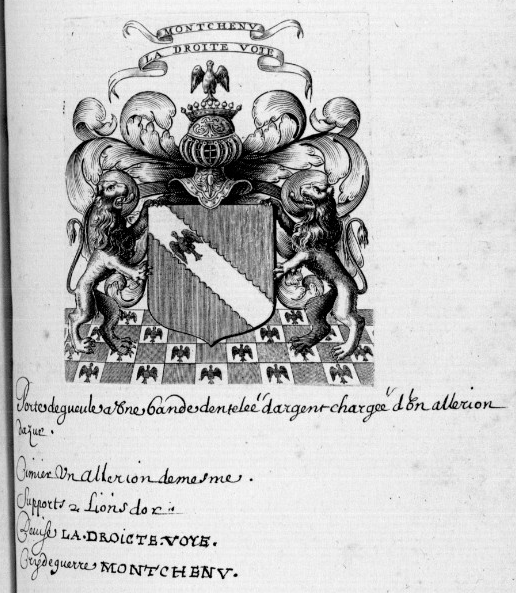 MONTCHENV
LA DROITE VOIE
Porte de gueule a Vne bande dentelée d'argent chargée d'Vn allerion
dazur.
Cimier Vn allerion demesme.
Supports 2 Lions dor
Deuise LA.DROICTE.VOYE.
Cry de guerre MONTCHENV.